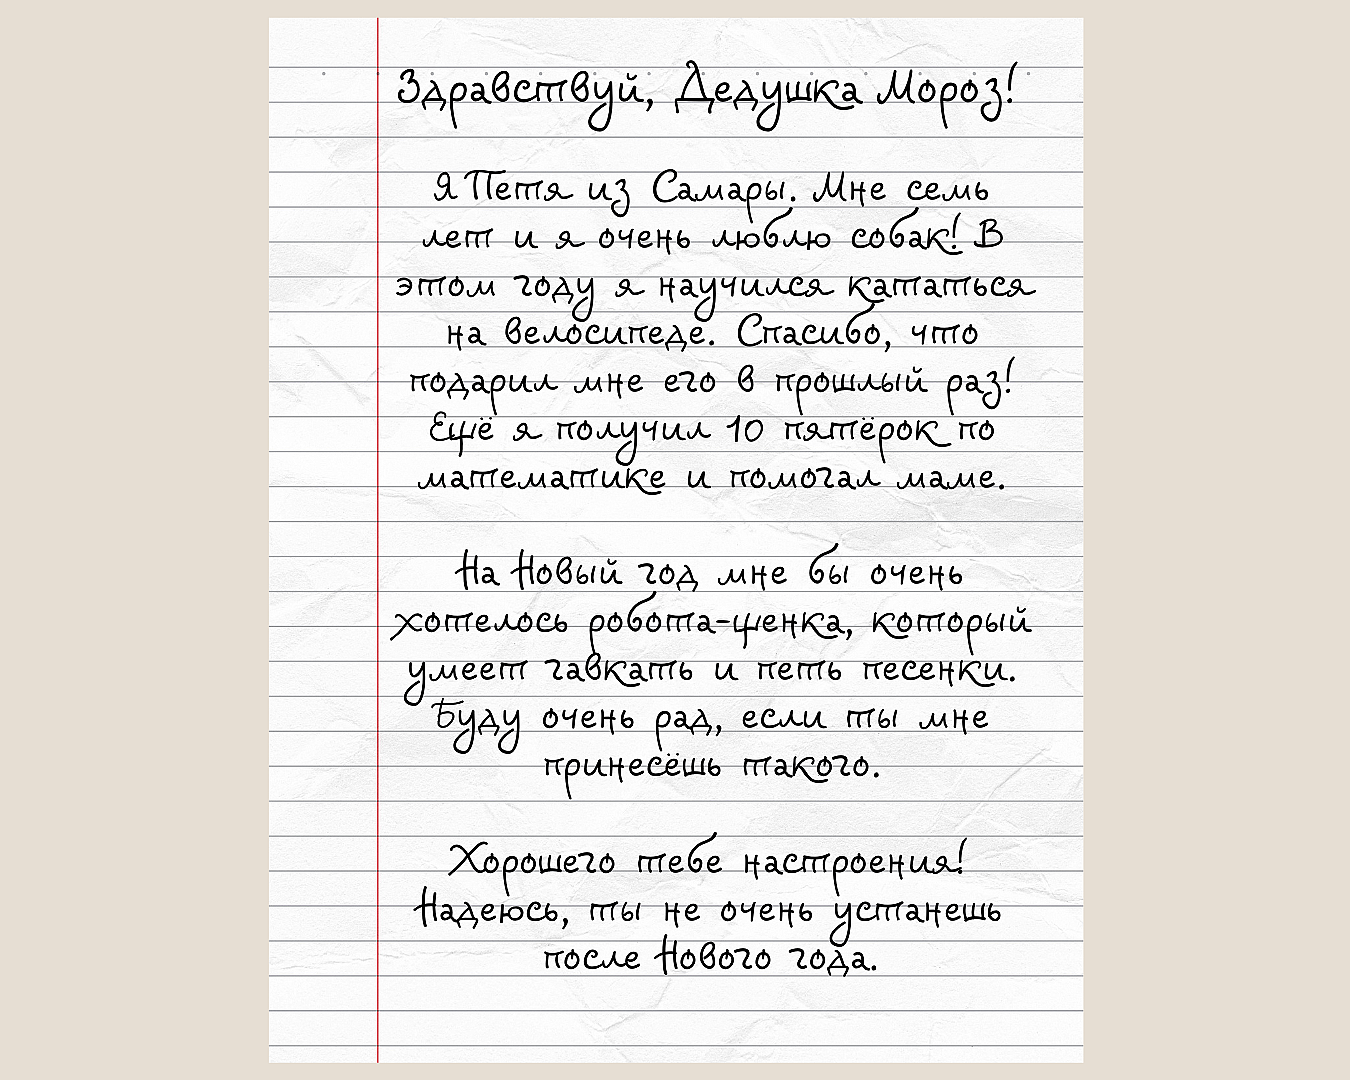 Здравствуй, Дедушка Мороз!
Я Петя из Самары. Мне семь
лет и я очень люблю собак! В
этом году я научился кататься
на велосипеде. Спасибо, что
подарил мне его в прошлый раз!
Ещё я получил 10 пятёрок по
математике и помогал маме.
На Новый год мне бы очень
хотелось робота-щенка, который
умеет гавкать и петь песенки.
Буду очень рад, если ты мне
принесёшь такого.
Хорошего тебе настроения!
Надеюсь, ты не очень устанешь
после Нового года.